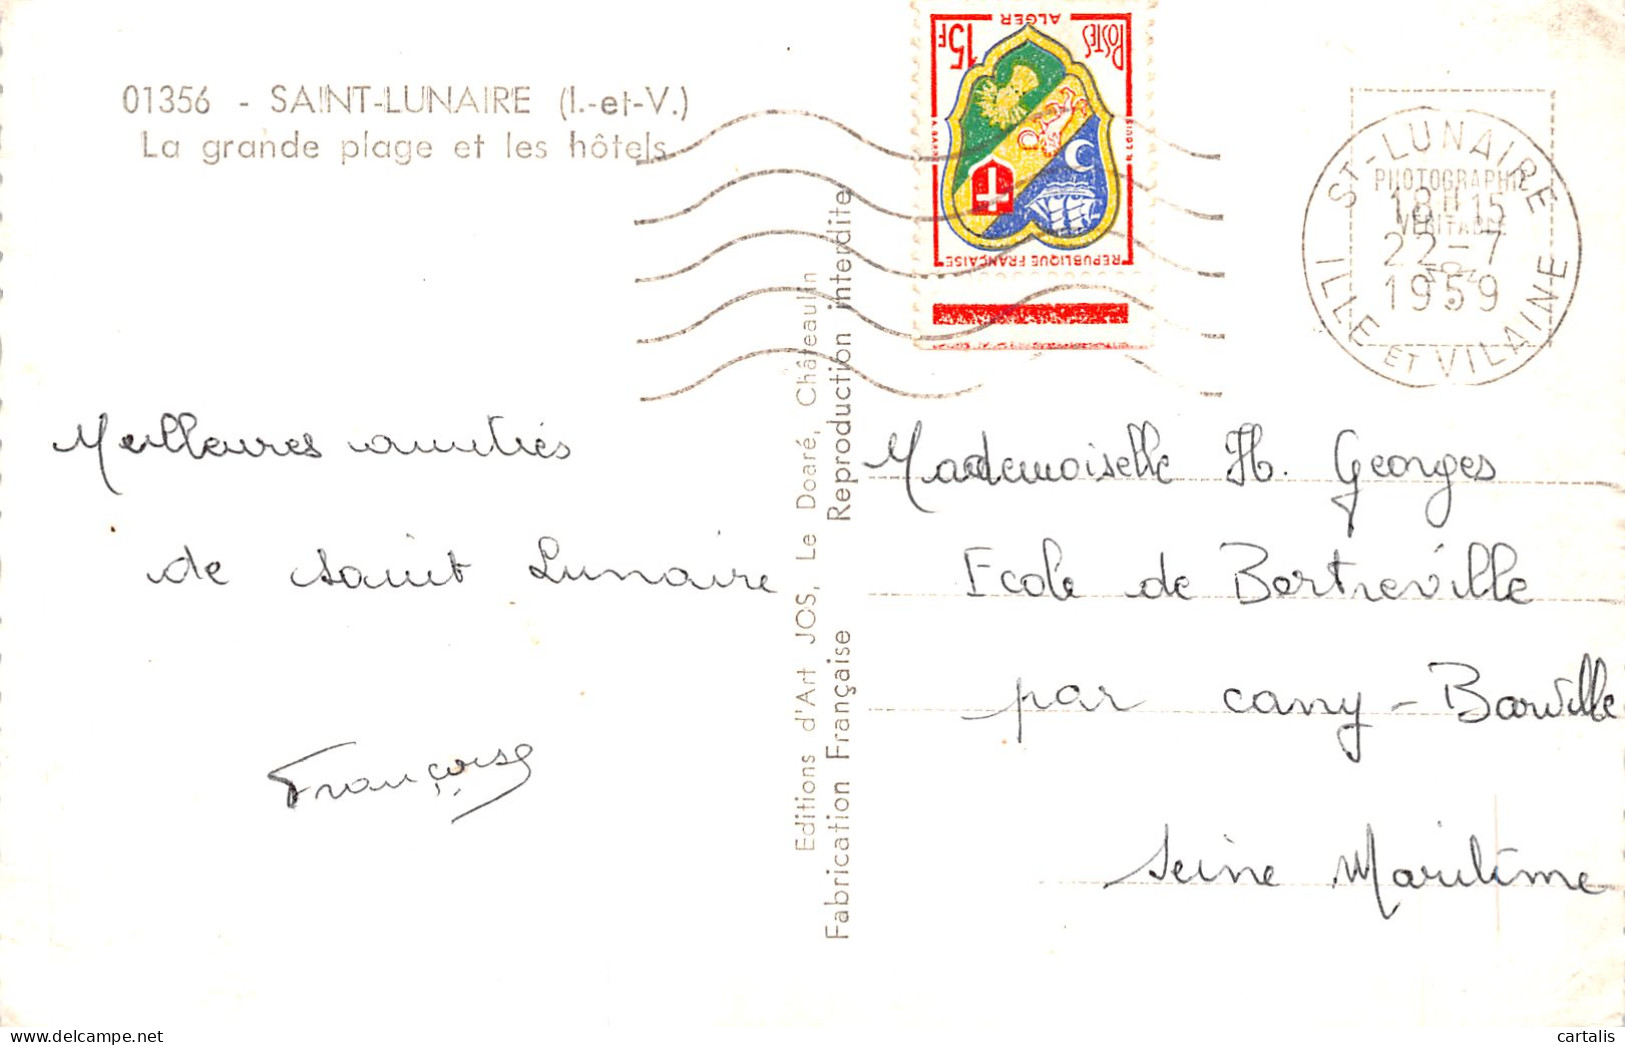 01356 - SAINT-LUNAIRE (I.-et-V.)
La grande plage et les hôtels
Meilleures amitiés
de Saint Lunaire
Françoise
Editions d'Art JOS, Le Doaré, Châteaulin
Reproduction interdite
Fabrication Française
POSTES
ALGER
15F
REPUBLIQUE FRANÇAISE
ST-LUNAIRE
PHOTOGRAPHIE
VERITABLE
18H15
22-7
1959
ILLE ET VILAINE
Mademoiselle H. Georges
Ecole de Bertreville
par Cany-Barville
Seine Maritime
delcampe.net
cartalis